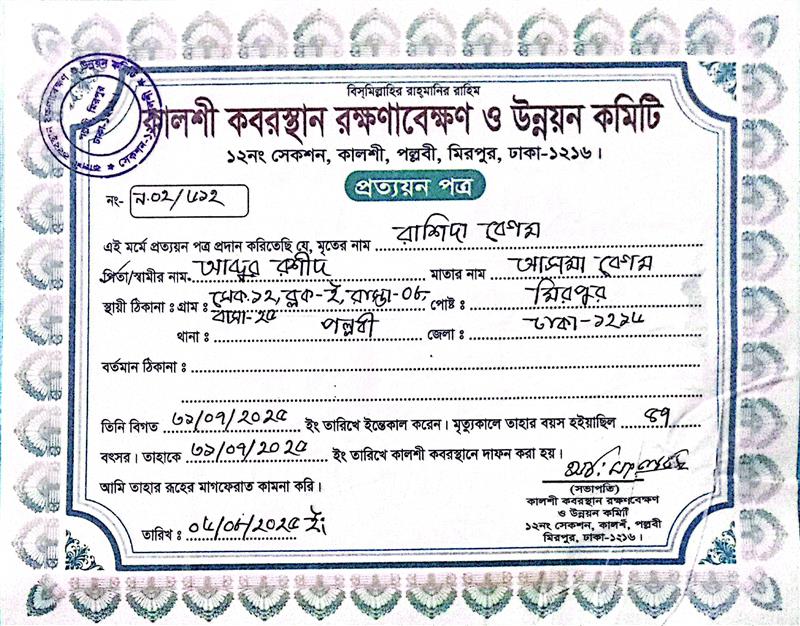 বিস্‌মিল্লাহির রাহ্‌মানির রাহিম
কালশী কবরস্থান রক্ষণাবেক্ষণ ও উন্নয়ন কমিটি
১২নং সেকশন, কালশী, পল্লবী, মিরপুর, ঢাকা-১২১৬।
প্রত্যয়ন পত্র
নং-
এই মর্মে প্রত্যয়ন পত্র প্রদান করিতেছি যে, মৃতের নাম রাশিদা বেগম
পিতা/স্বামীর নাম আব্দুর রশীদ মাতার নাম আমেনা বেগম
স্থায়ী ঠিকানা : গ্রাম : সেক.১২, ব্লক-ই, রাস্তা-০৮, পোষ্ট : মিরপুর
বাসা-২৫
থানা : পল্লবী জেলা : ঢাকা-১২১৬
বর্তমান ঠিকানা :
তিনি বিগত ৩১/০৭/২০২৫ ইং তারিখে ইন্তেকাল করেন। মৃত্যুকালে তাহার বয়স হইয়াছিল ৪৭
বৎসর। তাহাকে ৩১/০৭/২০২৫ ইং তারিখে কালশী কবরস্থানে দাফন করা হয়।
আমি তাহার রূহের মাগফেরাত কামনা করি।
(সভাপতি)
কালশী কবরস্থান রক্ষণবেক্ষণ
ও উন্নয়ন কমিটি
১২নং সেকশন, কালশী, পল্লবী
মিরপুর, ঢাকা-১২১৬।
তারিখ : ০৫/০৮/২০২৫ ইং